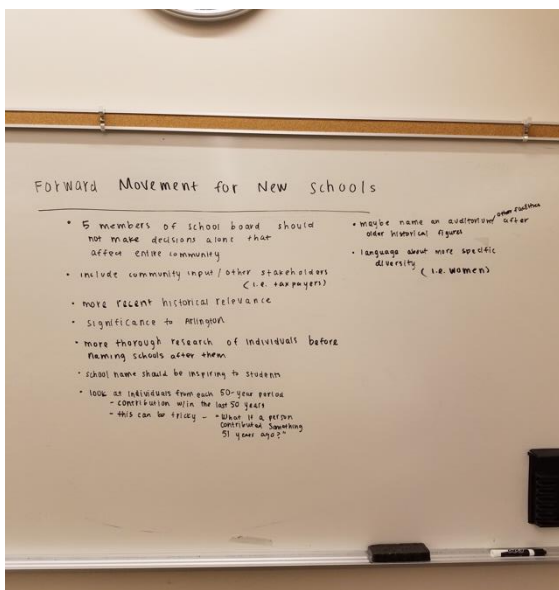 Forward Movement for New Schools
• 5 members of school board should
not make decisions alone that
affect entire community
• include community input / other stakeholders
(i.e. taxpayers)
• more recent historical relevance
• significance to Arlington
• more thorough research of individuals before
naming schools after them
• school name should be inspiring to students
• look at individuals from each 50-year period
- contribution w/in the last 50 years
- this can be tricky - "What if a person
contributed something
51 years ago?"
• maybe name an auditorium/other facilities after
older historical figures
• language about more specific
diversity
(i.e. women)